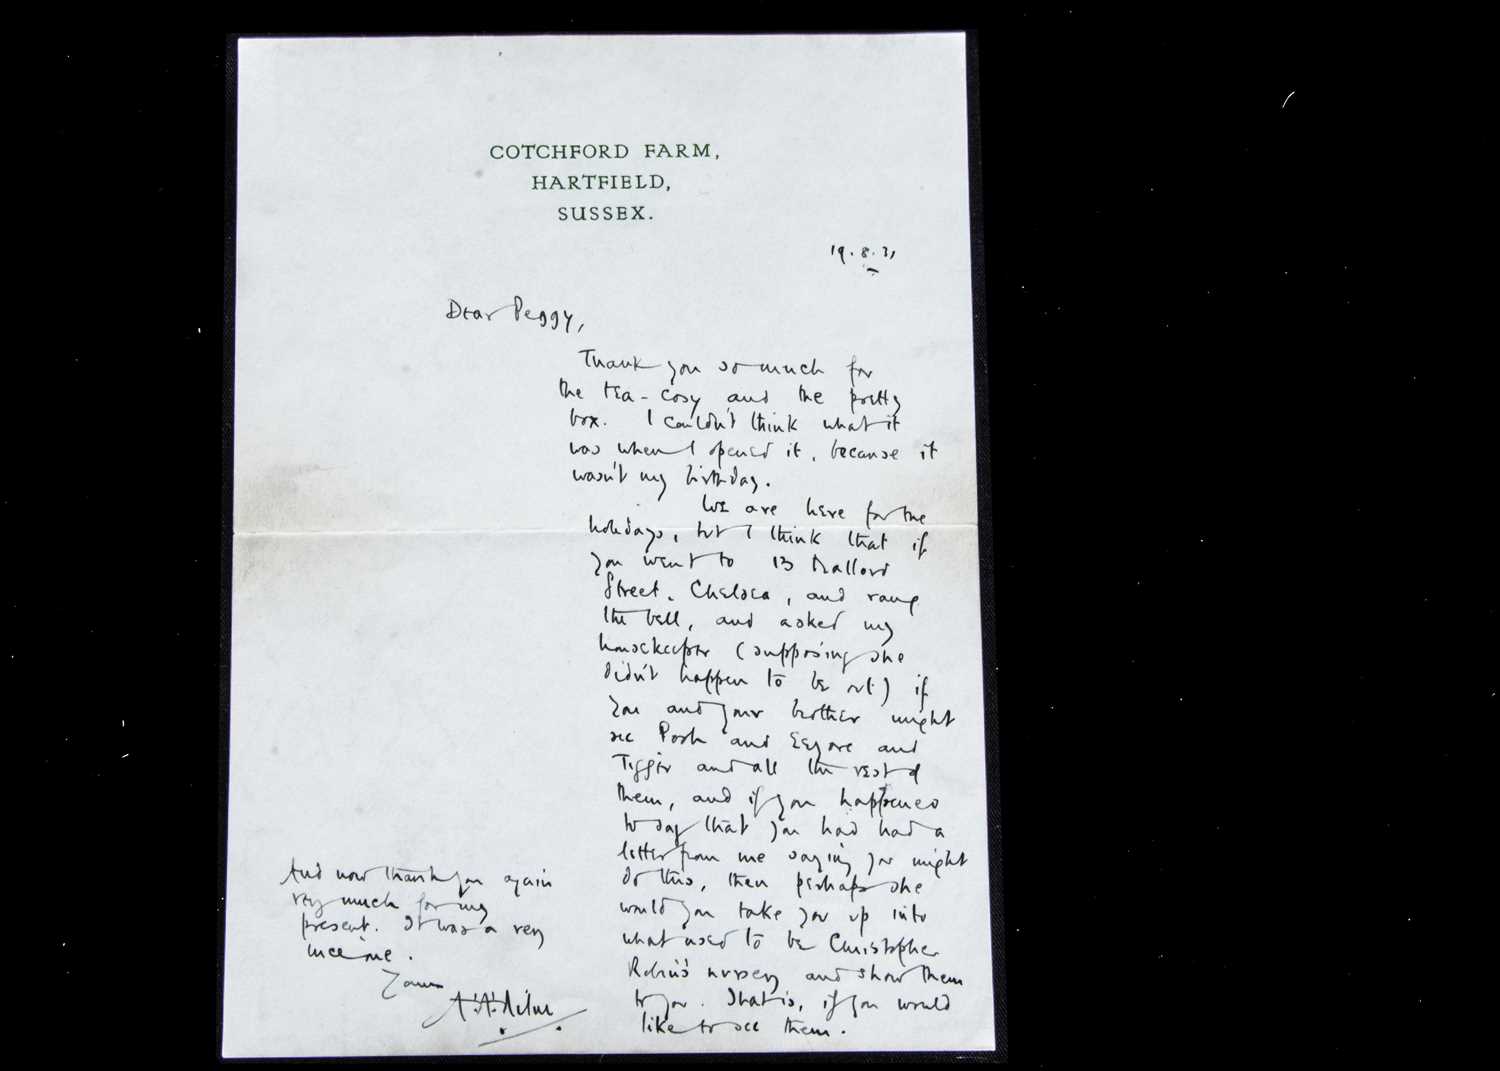 COTCHFORD FARM,
HARTFIELD,
SUSSEX.
19.8.31
Dear Peggy,
Thank you so much for
the tea-cosy and the pretty
box. I couldn't think what it
was when I opened it, because it
wasn't my birthday.
We are here for the
holidays, but I think that if
you went to 13 Mallord
Street, Chelsea, and rang
the bell, and asked my
housekeeper (supposing she
didn't happen to be out) if
you and your brother might
see Pooh and Eeyore and
Tigger and all the rest of
them, and if you happened
to say that you had had a
letter from me saying you might
do this, then perhaps she
would you take you up into
what used to be Christopher
Robin's nursery and show them
to you. That is, if you would
like to see them.
And now thank you again
very much for my
present. It was a very
nice one.
Yours
A.A. Milne